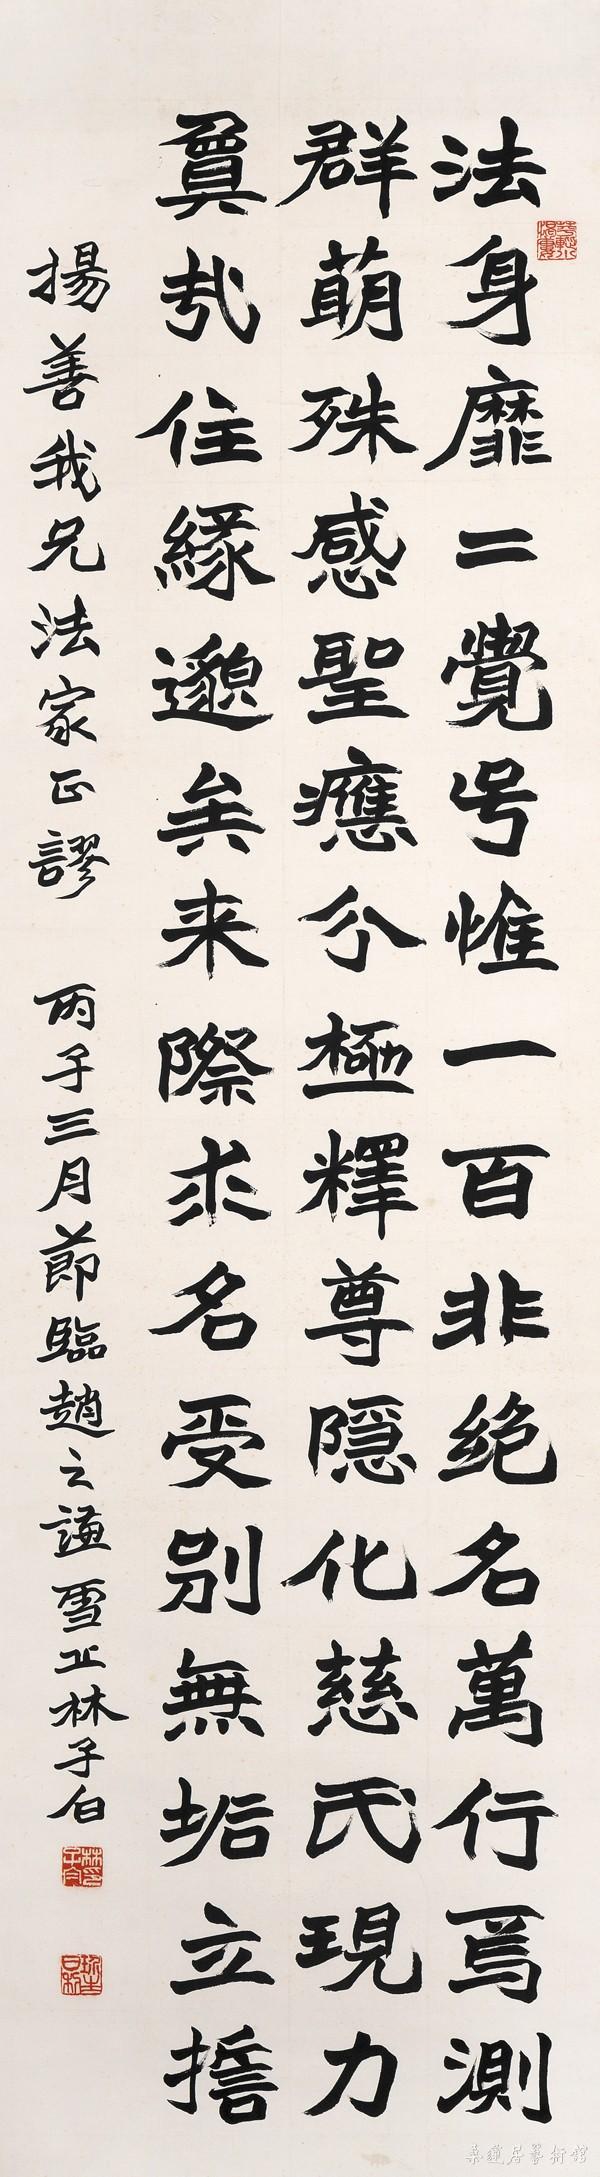 法身靡二覺号惟一百非絶名萬行焉測
群萌殊感聖應分極釋尊隠化慈氏現力
奠㢤住緣邈矣来際求名受别無垢立誓
揚善我兄法家正謬 丙子三月節臨趙之謙雪丘林子白